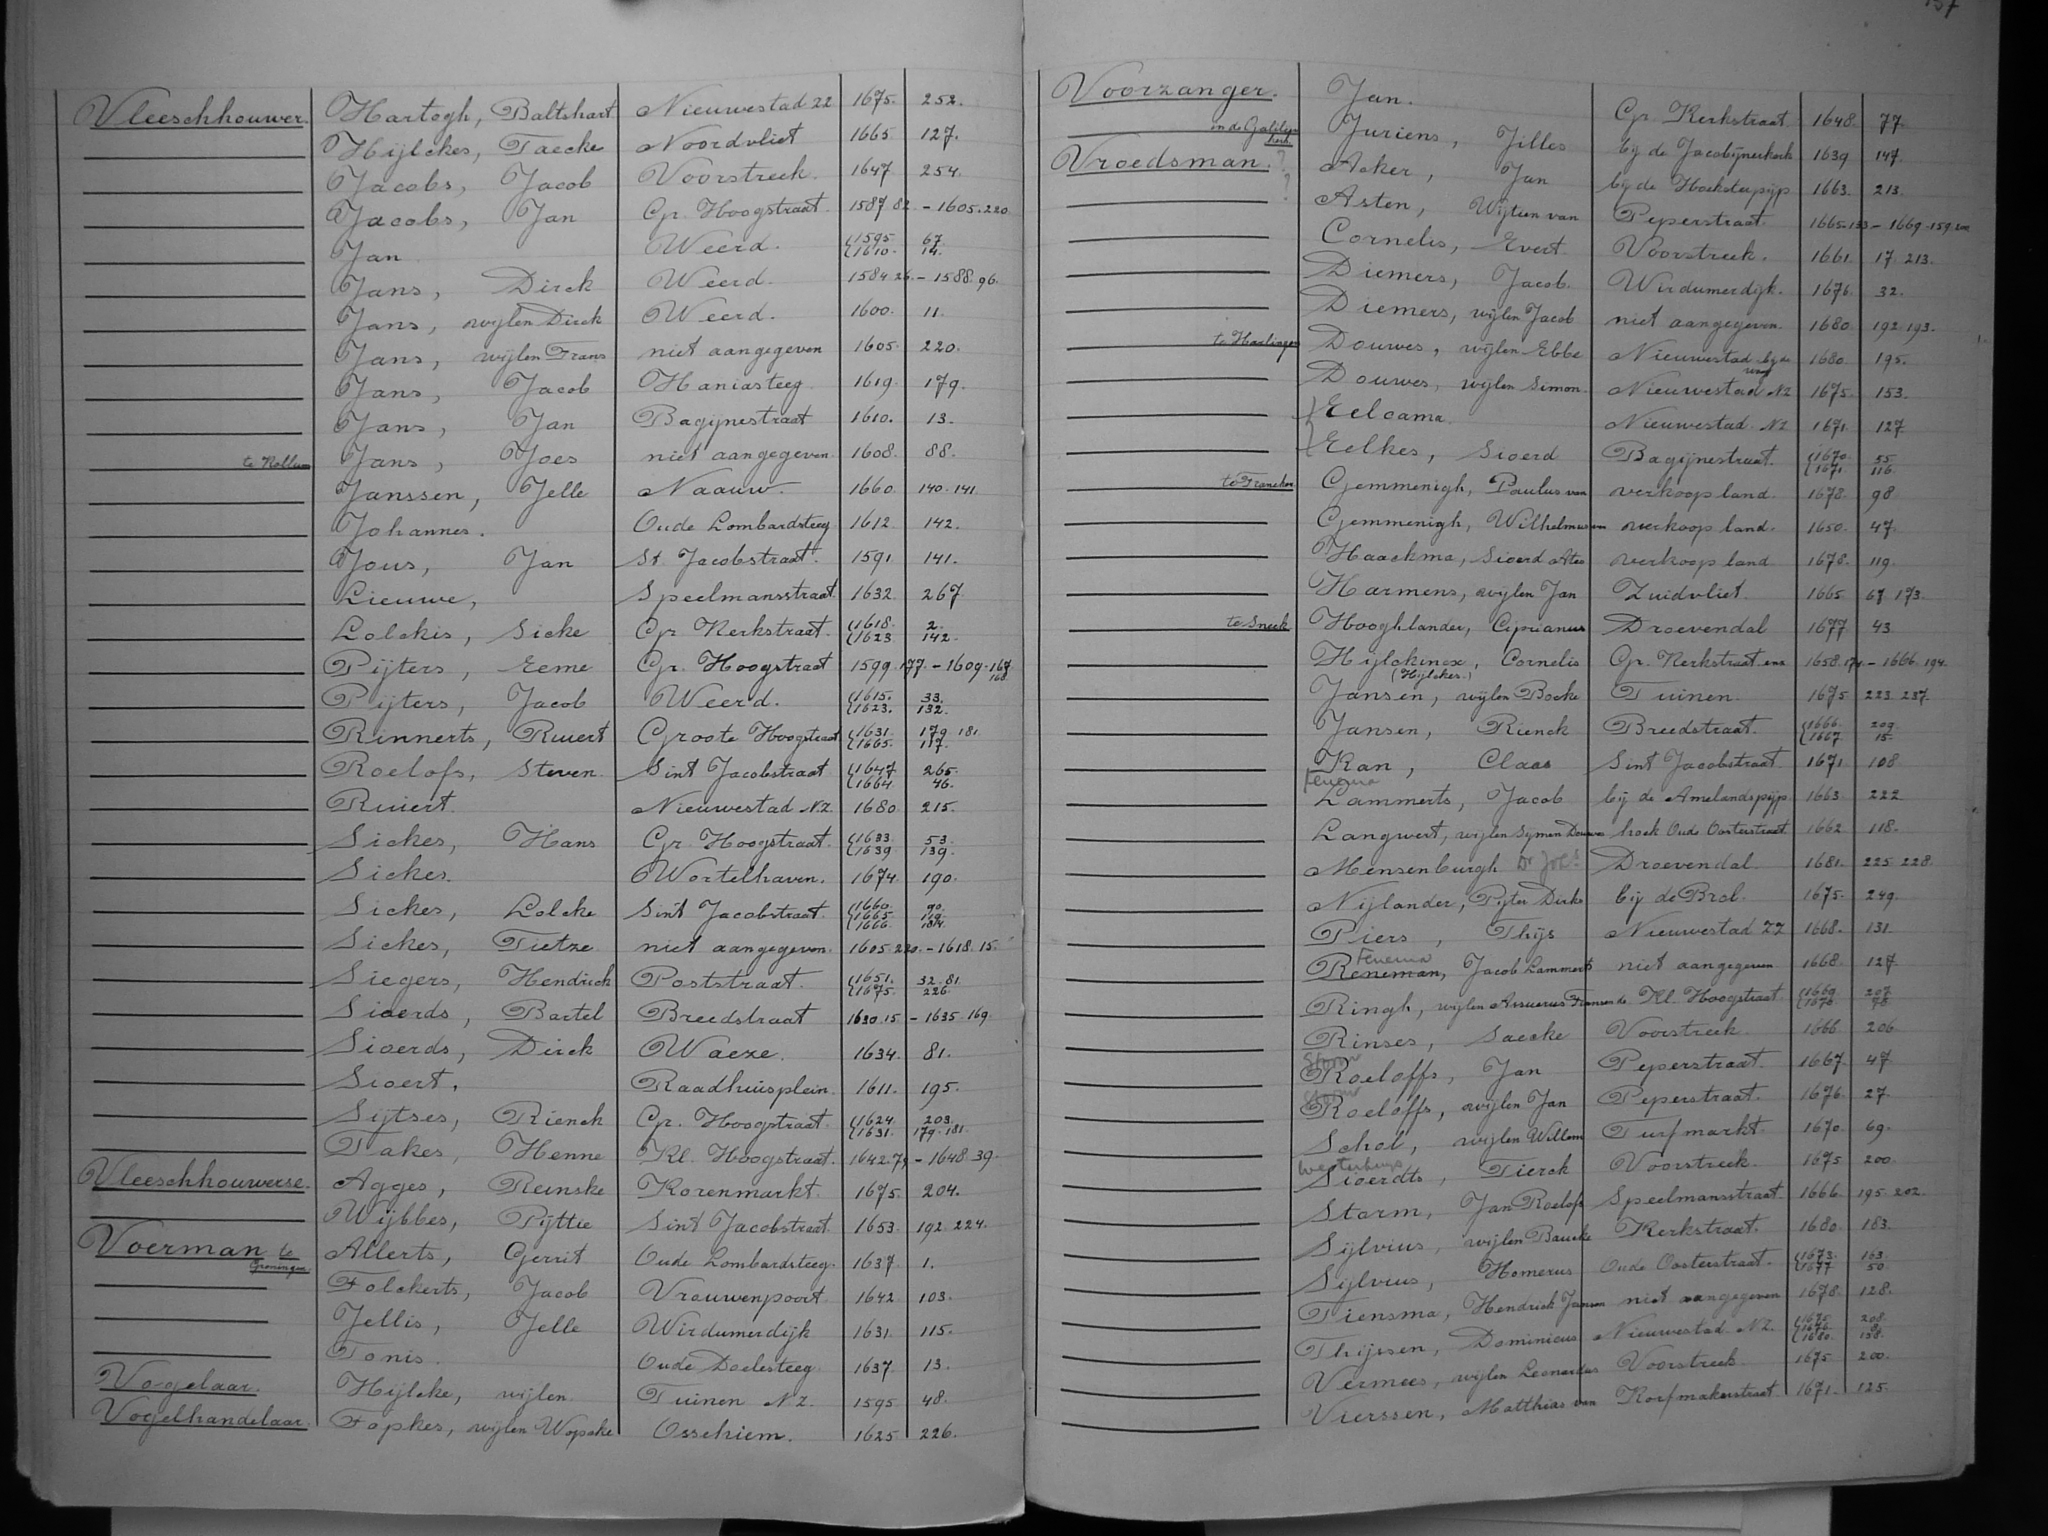 Vleeschhouwer. Hartogh, Baltshart Nieuwestad 22 1675. 252.
Hijlckes, Taecke Noordvliet 1665. 127.
Jacobs, Jacob Voorstreek. 1647 254.
Jacobs, Jan Gr. Hoogstraat. 1587 82 - 1605. 220
Jan Weerd. 1595 67. 1610. 14.
Jans, Dirck Weerd. 1584 26. - 1588. 96.
Jans, wijlen Dirck Weerd. 1600. 11.
Jans, wijlen Frans niet aangegeven 1605. 220.
Jans, Jacob Haniasteeg. 1619. 179.
Jans, Jan Bagijnestraat 1610. 13.
te Kollum Jans, Joes niet aangegeven 1608. 88.
Janssen, Jelle Naauw. 1660. 140. 141
Johannes. Oude Lombardsteeg 1612. 142.
Jous, Jan St. Jacobstraat. 1591 141.
Lieuwe, Speelmansstraat 1632. 267
Lolckis, Sicke Gr. Kerkstraat. 1618. 2. 1623 142.
Pijters, Eeme Gr. Hoogstraat 1599. 177 - 1609. 167 168.
Pijters, Jacob Weerd. 1615. 33. 1623. 132.
Rinnerts, Ruiert Groote Hoogstraat 1631. 179. 181. 1665. 117.
Roelofs, Steven. Sint Jacobstraat 1647 265. 1664 46.
Ruiert. Nieuwestad N.Z. 1680. 215.
Sickes, Hans Gr. Hoogstraat. 1633 53. 1639. 139.
Sickes. Wortelhaven. 1674. 190.
Sickes, Lolcke Sint Jacobstraat. 1660. 90. 1665. 119. 1666. 184.
Sickes, Tietze niet aangegeven. 1605. 220. - 1618. 15.
Siegers, Hendrick Poststraat. 1651. 32. 81. 1675. 226.
Sioerds, Bartel Breedstraat 1630. 15 - 1635. 169.
Sioerds, Dirck Waeze. 1634. 81.
Sioert, Raadhuisplein. 1611. 195.
Sijtses, Rienck Gr. Hoogstraat. 1624. 203. 1631. 179. 181.
Takes, Henne Kl. Hoogstraat. 1642. 79 - 1648. 39.
Vleeschhouwerse. Agges, Reinske Korenmarkt. 1675. 204.
Wijbbes, Pijttie Sint Jacobstraat. 1653. 192. 224.
Voerman te Groningen Allerts, Gerrit Oude Lombardsteeg. 1637. 1.
Folckerts, Jacob Vrouwenpoort 1642 103.
Jellis, Jelle Wirdumerdijk 1631. 115.
Tonis. Oude Doelesteeg. 1637. 13.
Vogelaar. Hijlcke, wijlen Tuinen N.Z. 1595 48.
Vogelhandelaar. Fopkes, wijlen Wopcke Ossekiem. 1625 226.
157
Voorzanger. Jan. Gr. Kerkstraat 1648. 77.
in de Galileër kerk. Juriens, Jilles bij de Jacobijnerkerk 1639 147.
Vroedsman. ? Acker, Jan bij de Hoeksterpijp 1663. 213.
? Asten, Wijtien van Peperstraat. 1665. 133 - 1669. 159. 200
Cornelis, Evert Voorstreek. 1661. 17. 213.
Diemers, Jacob. Wirdumerdijk. 1676. 32.
Diemers, wijlen Jacob niet aangegeven 1680 192. 193.
te Harlingen Douwes, wijlen Ebbe Nieuwestad bij de waag 1680. 195.
Douwes, wijlen Simon Nieuwestad NZ 1675. 153.
Eelcama. Nieuwestad. NZ 1671. 127
Eelkes, Sioerd Bagijnestraat. 1670. 55. 1671. 116.
te Franeker Gemmenigh, Paulus van verkoop land. 1678. 98
Gemmenigh, Wilhelmus van verkoop land. 1650. 47.
Haackma, Sioerd Ates verkoop land 1678. 119.
Harmens, wijlen Jan Zuidvliet. 1665 67 173.
te Sneek Hooghlander, Ciprianus Droevendal 1677 43
Hijlckinex, Cornelis Gr. Kerkstraat enz 1658. 174 - 1666. 194.
(Hijlckes.)
Jansen, wijlen Bocke Tuinen. 1675 223. 237.
Jansen, Rienck Breedstraat. 1666. 209. 1667. 15.
Kan, Claas Sint Jacobstraat. 1671. 108
Fenema
Lammerts, Jacob bij de Amelandspijp 1663. 222
Langwert, wijlen Symen Douwes hoek Oude Oosterstraat 1662 118.
Mensenburgh Dr Joh.s Droevendal 1681. 225. 228.
Nijlander, Pijter Dirks bij de Brol. 1675. 249.
Piers, Thijs Nieuwestad ZZ 1668. 131
Fenema
Reneman, Jacob Lammerts niet aangegeven 1668. 127
Ringh, wijlen Assuerus Fransen de Kl. Hoogstraat. 1669. 207. 1676. 78.
Rinses, Saecke Voorstreek. 1666 206.
Storm
Roeloffs, Jan Peperstraat. 1667. 47
Storm
Roeloffs, wijlen Jan Peperstraat. 1676. 27.
Schol, wijlen Willem Turfmarkt. 1670. 69.
Westerhuys
Sioerdts, Tierck Voorstreek. 1675 200.
Storm, Jan Roelofs Speelmansstraat. 1666. 195. 202.
Sijlvius, wijlen Baucke Kerkstraat. 1680. 183.
Sijlvius, Homerus Oude Oosterstraat. 1673. 163. 1677 50.
Tiensma, Hendrick Jansen niet aangegeven 1678. 128.
Thijssen, Dominicus Nieuwestad NZ. 1675. 208. 1676. 8. 1680. 138.
Vermees, wijlen Leonardus Voorstreek. 1675. 200.
Vierssen, Matthias van Korfmakerstraat. 1671. 125.